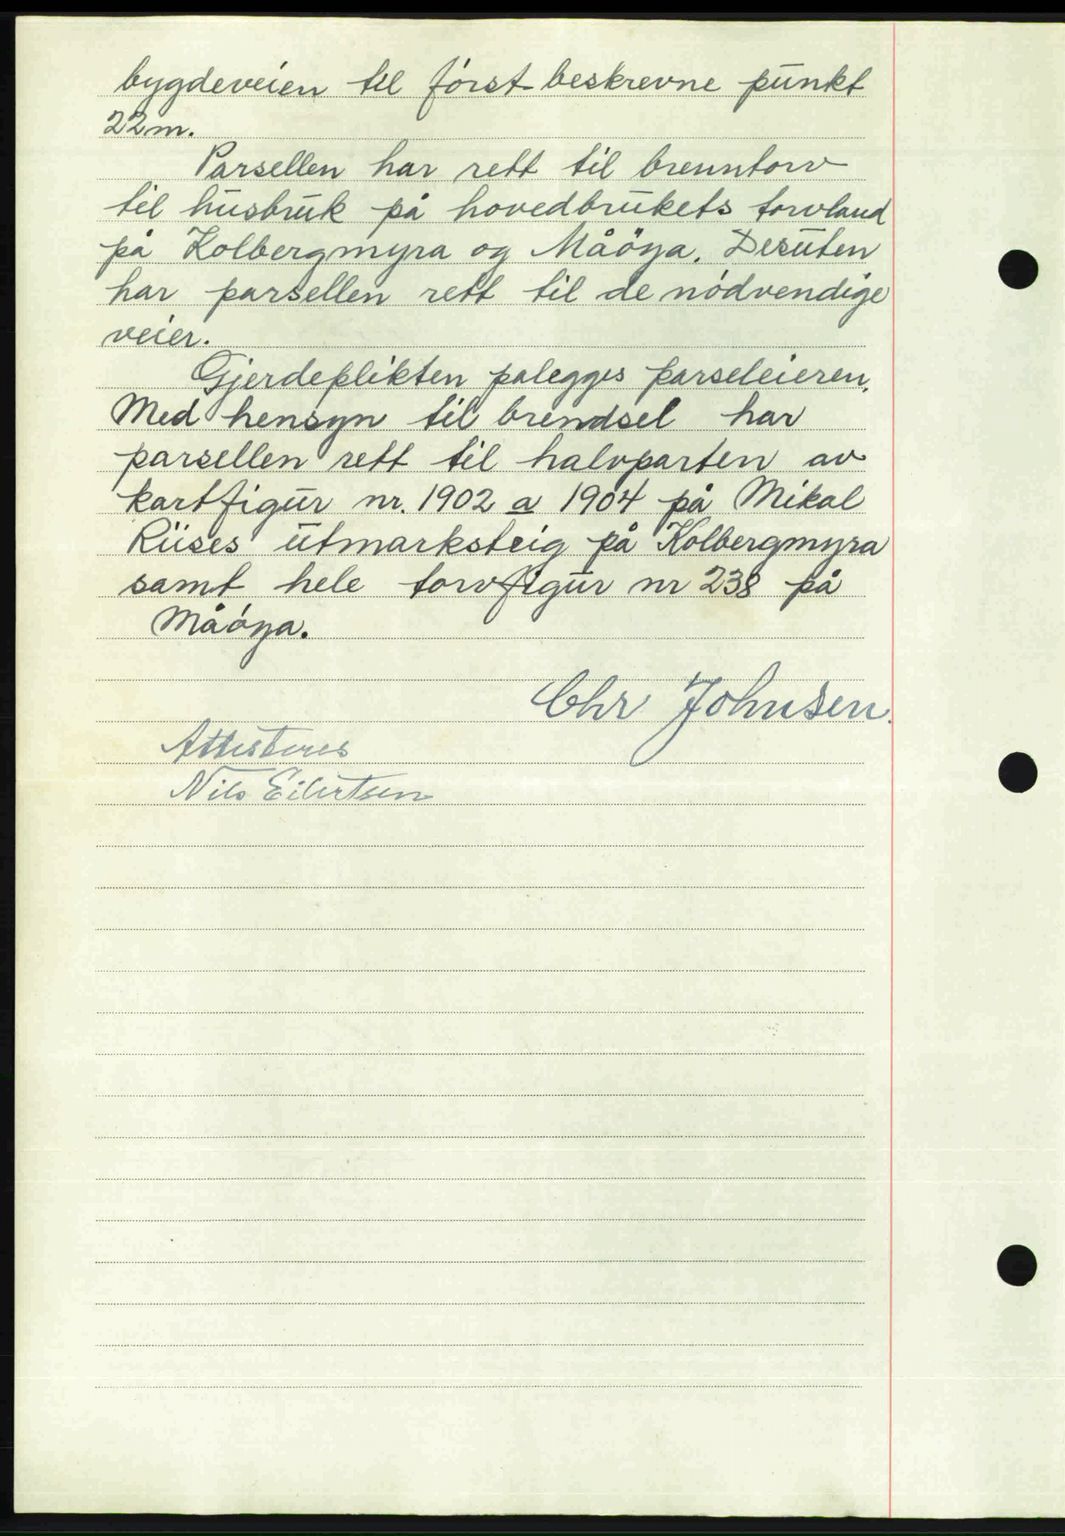 bygdeveien til först beskrevne punkt
22m.
Parsellen har rett til brenntorv
til husbruk på hovedbrukets torvland
på Kolbergmyra og Måöya. Desuten
har parsellen rett til de nödvendige
veier.
Gjerdeplikten palegges parseleieren.
Med hensyn til brendsel har
parsellen rett til halvparten av
kartfigur nr. 1902 a 1904 på Mikal
Riises utmarksteig på Kolbergmyra
samt hele torvfigur nr 238 på
Måöya.
Chr Johnsen.
Attesteres
Nils Eilertsen